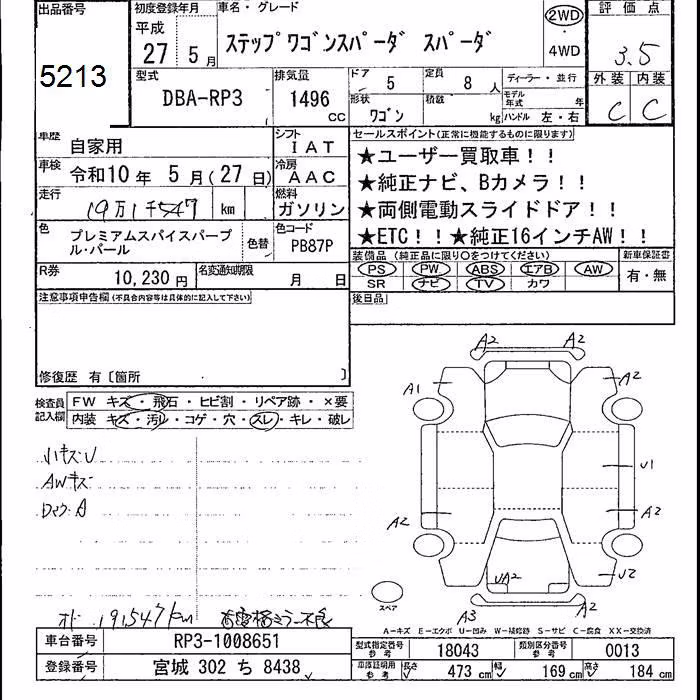 出品番号 初度登録年月 車名・グレード 2WD 評価点
平成
27 5月 ステップワゴンスパーダ スパーダ ・ 3.5
4WD
5213 型式 排気量 ドア 5 定員 8人 ディーラー・並行 外装 内装
DBA-RP3 1496 cc 形状 ワゴン 積数 kg モデル年式 年 C C
ハンドル 左・右
車歴 自家用 シフト IAT セールスポイント(正常に機能するものに限ります)
車検 令和10年 5月(27日) 冷房 AAC ★ユーザー買取車！！
走行 19万1千547 km 燃料 ガソリン ★純正ナビ、Bカメラ！！
★両側電動スライドドア！！
色 プレミアムスパイスパープル・パール 色替 色コード PB87P ★ETC！！★純正16インチAW！！
装備品 (純正品に限り○をつけてください) 新車保証書
R券 10,230円 名変通知期限 月 日 PS PW ABS エアB AW 有・無
SR ナビ TV カワ
注意事項申告欄(不具合内容等は具体的に記入して下さい) 後日品
修復歴 有〔箇所 〕
検査員記入欄 FW キズ・飛石・ヒビ割・リペア跡・×要
内装 キズ・汚れ・コゲ・穴・スレ・キレ・破レ
A2 A2
A1 A2
小キズU
AWキズ U1
A2 A2
UA2 U2
スペア
A3 A2
オド 191547km
A-キズ E-エクボ U-凹み W-補修跡 S-サビ C-腐食 XX-交換済
車台番号 RP3-1008651 型式指定番号 参考 18043 類別区分番号 参考 0013
登録番号 宮城 302 ち 8438 車庫証明用 参考 長さ 473cm 幅 169cm 高さ 184cm